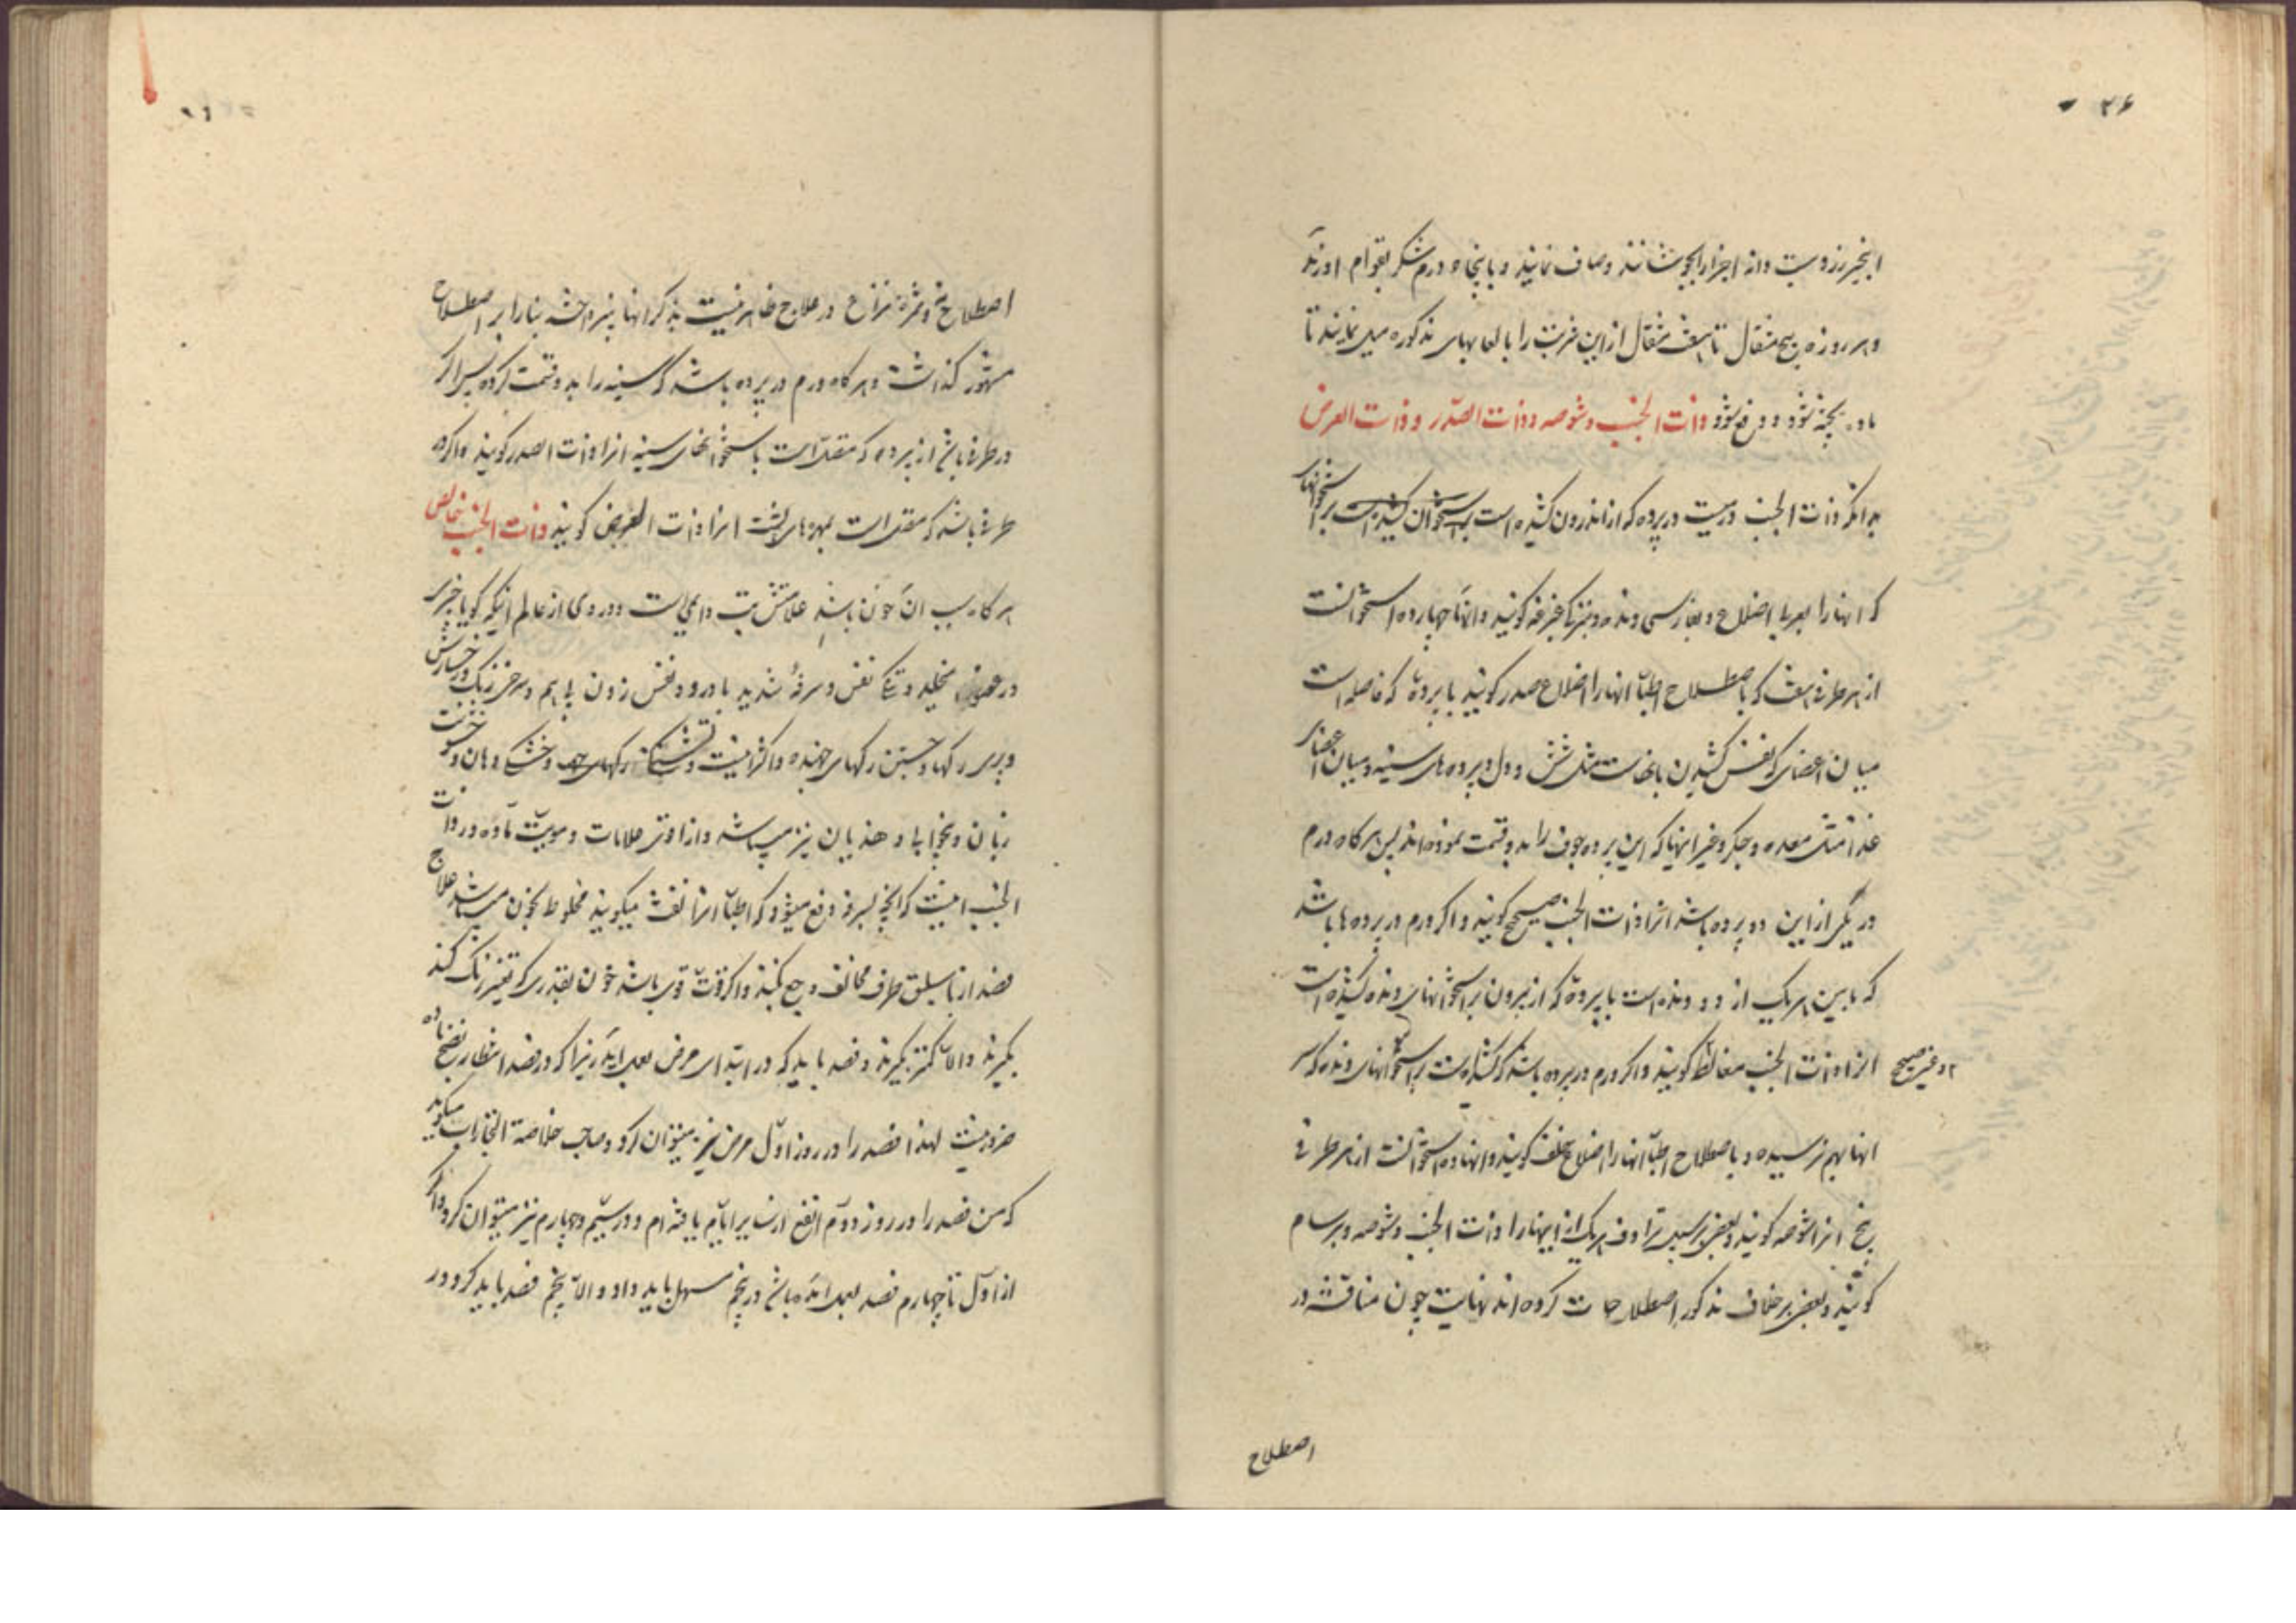 ۲۶
انجیر زرد بیست دانه اجزا را بجوشانند و صاف نمایند و با پنجاه درم شکر بقوام اورند
و هر روزه پنج مثقال تا هفت مثقال از این شربت را با لعابهای مذکوره میل نمایند تا
ماده پخته شود و دفع شود ذات الجنب و شوصه و ذات الصدر و ذات العرض
بدانکه ذات الجنب ورمیست در پرده که از اندرون کشیده است بر استخوان کشیده است بر استخوانهای
که انها را بعربی اضلاع و بفارسی دنده و بترکی قبرغه گویند و انها چهارده استخوانست
از هر طرفی هفت که باصطلاح اطبا انها را اضلاع صدر گویند یا پرده که فاصله است
میان اعضای که نفس کشیدن بانهاست مثل شش و دل و پرده های سینه و میان اعضای
غذا مثل معده و جگر و غیر اینها که این پرده جوف را بدو قسمت نموده اند پس هرگاه ورم
در یکی از این دو پرده باشد انرا ذات الجنب صحیح گویند و اگر ورم در پرده ها باشد
که مابین هر یک از دو دنده است یا پرده که از بیرون بر استخوانهای دنده کشیده است
انرا ذات الجنب مغالط گویند و اگر ورم در پرده باشد که کشیده است بر استخوانهای دنده که سر
و غیر صحیح
انها بهم نرسیده و باصطلاح اطبا انها را اضلاع خلف گویند و انها ده استخوانست از هر طرفی
پنج انرا شوصه گویند و بعضی بر سبیل ترادف هر یک از اینها را ذات الجنب و شوصه و برسام
گویند و بعضی بر خلاف مذکور اصطلاحات کرده اند نهایت چون مناقشه در
اصطلاح
اصطلاح و ثمره نزاع در علاج ظاهر نیست بذکر انها نپرداخته بنا را بر اصطلاح
مشهور گذاشت و هرگاه ورم در پرده باشد که سینه را بدو قسمت کرده پس اگر
در طرفی باشد از پرده که متصل است باستخوانهای سینه انرا ذات الصدر گویند و اگر در
طرفی باشد که متصل است بمهره های پشت انرا ذات العرض گویند ذات الجنب خالص
هرگاه سبب ان خون باشد علامتش تب دایمی است و دردی از عالم اینکه گویا چیزی
در عضو میخلد و تنگی نفس و سرفه شدید با درد و نفس زدن پی هم و سرخی رنگ رخسارش
و پری رگها و جستن رگهای جهنده و اکثر و تشنگی و خشکی دهان و خشونت
زبان و بیخوابی و هذیان نیز میباشد و از اوثق علامات دمویت ماده در ذات
الجنب اینست که انچه بسرفه دفع میشود که اطبا انرا نفث میگویند مخلوط بخون میباشد علاج
فصد از باسلیق طرف مخالف وجع بکنند و اگر قوت قوی باشد خون بقدری که تغییر رنگ کند
بگیرند و الا کمتر بگیرند و فصد باید که در ابتدای مرض بعمل اید زیرا که در فصد انتظار نضج ماده
ضرور نیست لهذا فصد را در روز اول مرض نیز میتوان کرد و صاحب خلاصة التجارب میگوید
که من فصد را در روز دوم انفع از سایر ایام یافته ام و در سیم و چهارم نیز میتوان کرد و اگر
از اول تا چهارم فصد بعمل امده باشد در پنجم مسهل باید داد و الا پنجم فصد باید کرد و در